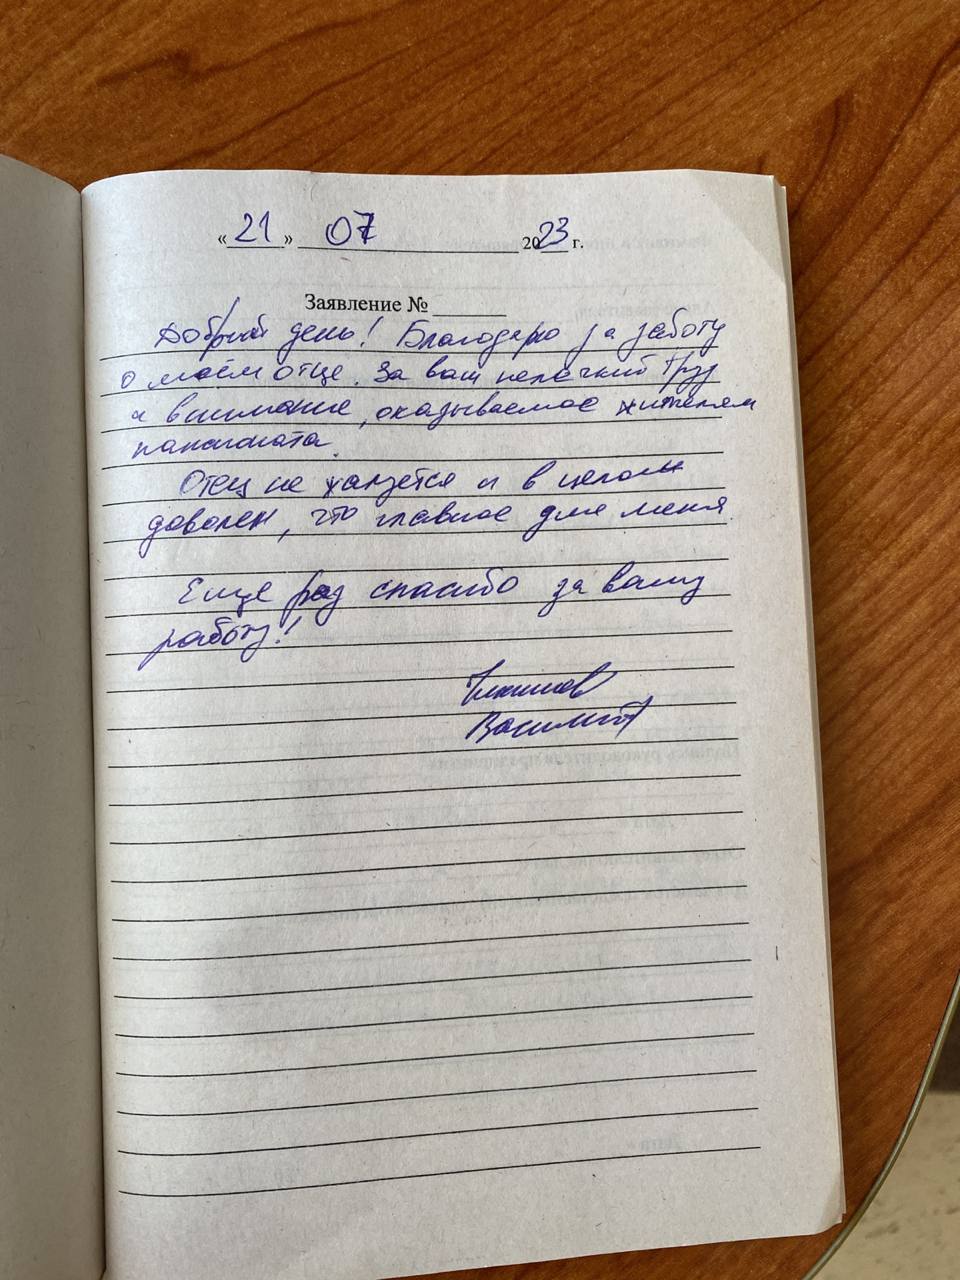 «21» 07 2023 г.
Заявление №
Добрый день! Благодарю за заботу
о моём отце. За ваш нелёгкий труд
и внимание, оказываемое жителям
пансионата.
Отец не жалуется и в целом
доволен, что главное для меня
Еще раз спасибо за вашу
работу!